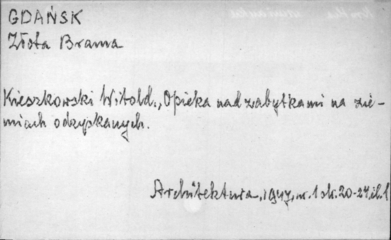 GDAŃSK
Złota Brama
Kieszkowski Witold., Opieka nad zabytkami na zie-
miach odzyskanych.
Architektura, 1947, nr. 1 str. 20-24, il. 1